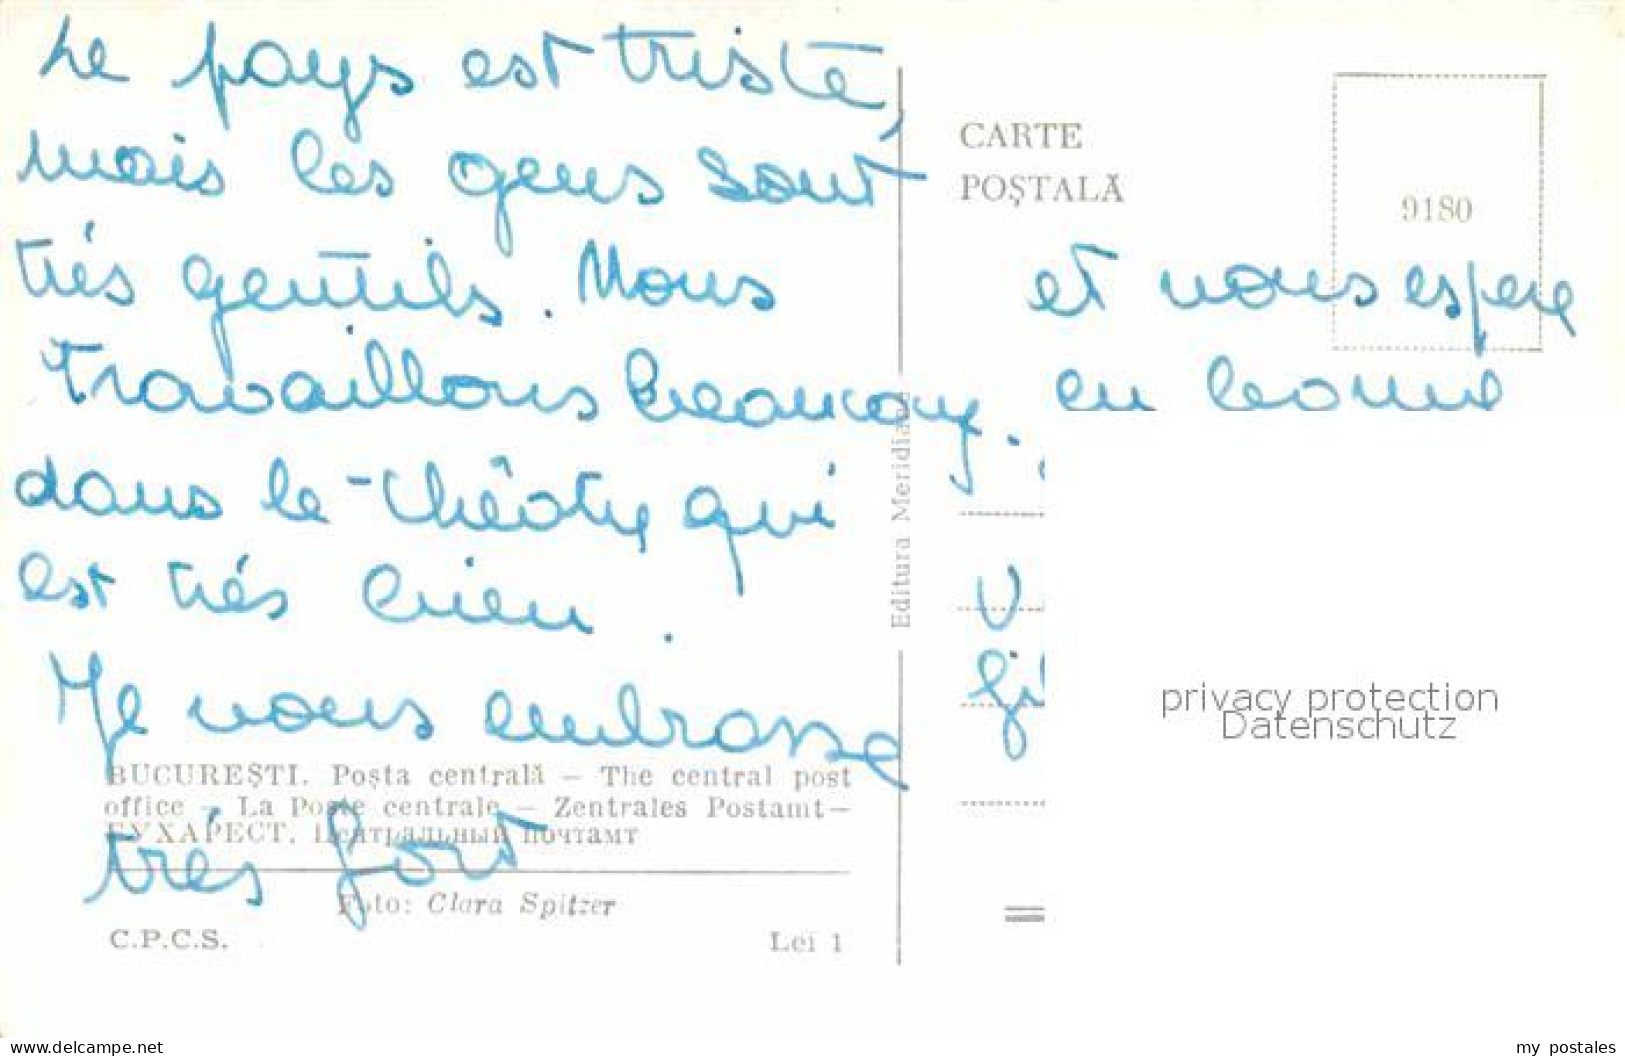 Le pays est triste,
mais les gens sont
trés gentils. Nous
travaillons beaucoup.
dans le théâtre qui
est trés bien.
Je vous embrasse
trés fort
BUCUREŞTI. Poşta centrală — The central post
office — La Poste centrale — Zentrales Postamt —
БУХАРЕСТ. Центральный почтамт
Foto: Clara Spitzer
C.P.C.S. Lei 1
Editura Meridiane
CARTE
POŞTALĂ
9180
et vous espere
en bonne
privacy protection
Datenschutz
www.delcampe.net
my postales